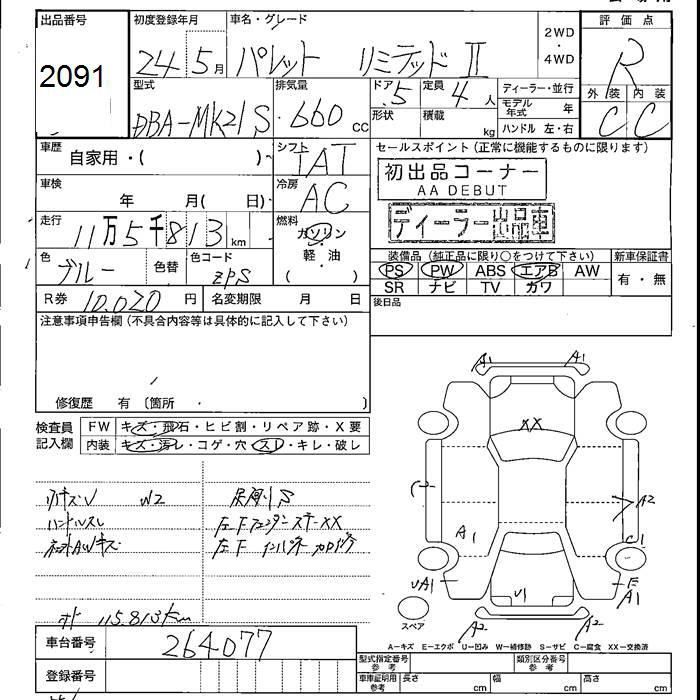 出品番号
2091
初度登録年月
24 5月
車名・グレード
パレット リミテッドⅡ
2WD
・
4WD
評価点
R
外装 内装
C C
型式
DBA-MK21S
排気量
660 cc
ドア 5
定員 4 人
形状
積載 kg
ディーラー・並行
モデル年式 年
ハンドル 左・右
車歴 自家用・( )
シフト
AT
セールスポイント(正常に機能するものに限ります)
初出品コーナー
AA DEBUT
ディーラー出品車
車検 年 月( 日)
冷房
AC
走行 11万5千813 km
燃料
ガソリン
軽・油
( )
色 ブルー
色替
色コード
ZPS
装備品(純正品に限り〇をつけて下さい)
PS PW ABS エアB AW
SR ナビ TV カワ
新車保証書
有・無
R券 10.020 円
名変期限 月 日
後日品
注意事項申告欄(不具合内容等は具体的に記入して下さい)
修復歴 有〔箇所 〕
検査員記入欄
FW キズ・飛石・ヒビ割・リペア跡・X要
内装 キズ・汚レ・コゲ・穴・スレ・キレ・破レ
W2
ハンドルスレ
左Fフェンダーステー XX
左F インパネ
115.813km
車台番号 264077
登録番号
A1 A1
XX
A2
A1
C1
UA1
U1
A1
A2 A2
スペア
A－キズ E－エクボ U－凹み W－補修跡 S－サビ C－腐食 XX－交換済
型式指定番号 参考
類別区分番号 参考
車庫証明用 参考
長さ cm
幅 cm
高さ cm